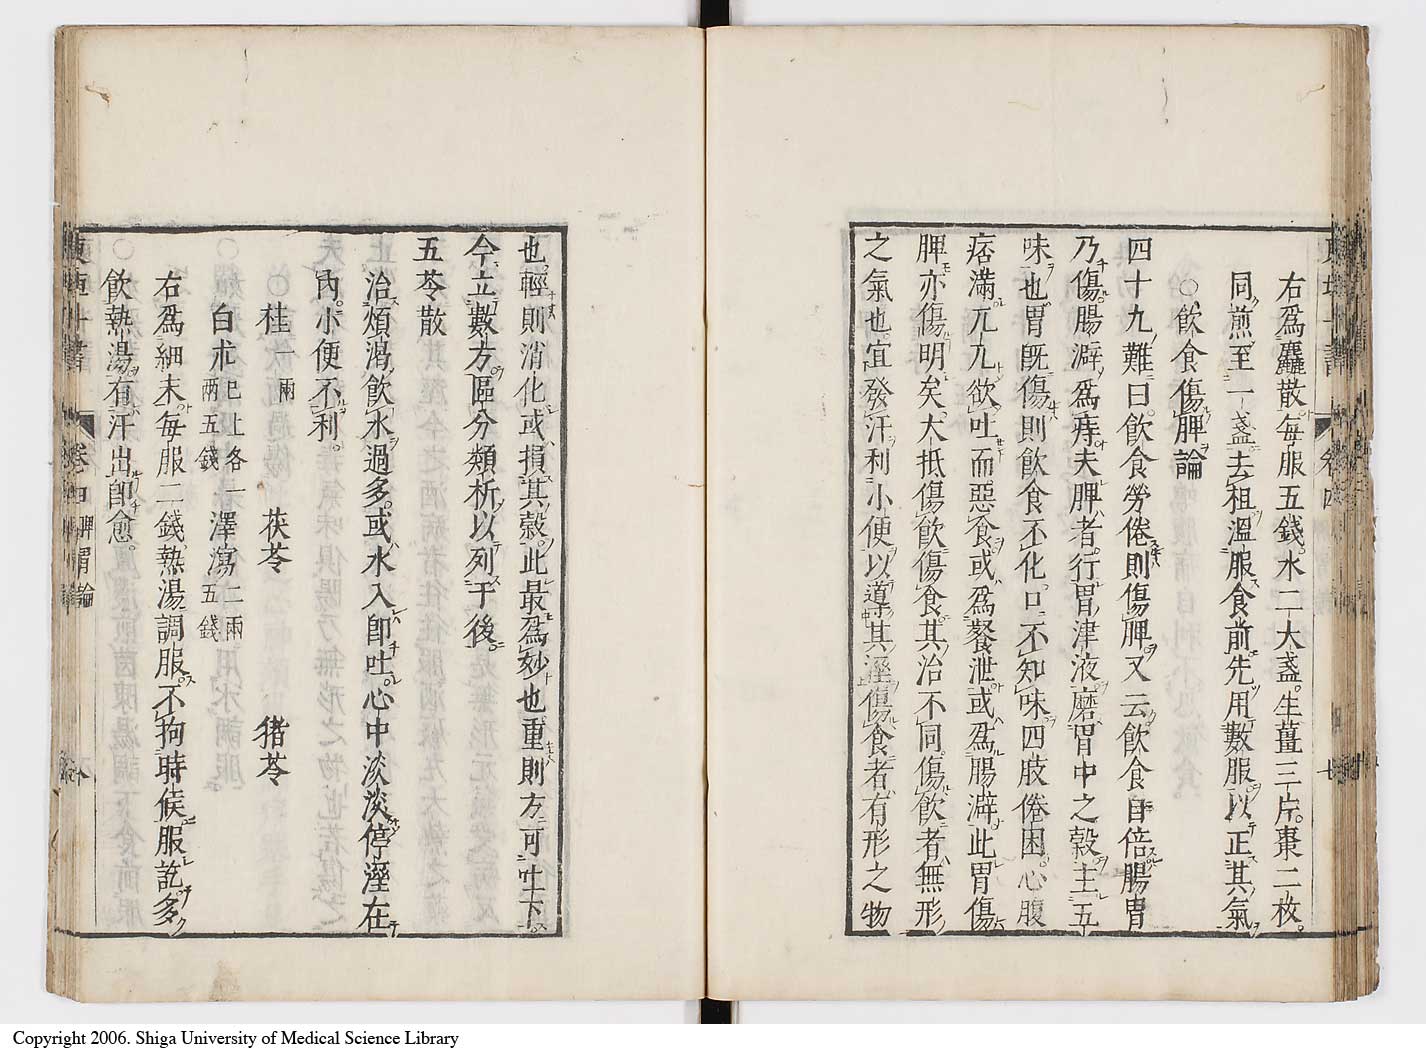 右爲麤散。每服五錢。水二大盞。生薑三片。棗二枚。
同煎至一盞去柤溫服食前先用數服以正其氣
○飲食傷脾論
四十九難曰。飲食勞倦則傷脾又云飲食自倍腸胃
乃傷腸澼爲痔夫脾者行胃津液磨胃中之穀主五
味也胃既傷則飲食不化口不知味四肢倦困。心腹
痞滿兀兀欲吐而惡食或爲飱泄或爲腸澼此胃傷
脾亦傷明矣。大抵傷飲傷食。其治不同。傷飲者無形
之氣也宜發汗利小便以導其溼傷食者有形之物
也輕則消化或損其穀。此最爲妙也重則方可吐下。
今立數方。區分類析以列于後。
五苓散
治煩渴飲水過多。或水入即吐。心中淡淡停溼在
內。小便不利。
桂一兩 茯苓 猪苓
白朮已上各一兩五錢 澤瀉二兩五錢
右爲細末。每服二錢熱湯調服。不拘時候服訖多
飲熱湯。有汗出即愈。
卷四脾胃論
卷四
Copyright 2006. Shiga University of Medical Science Library